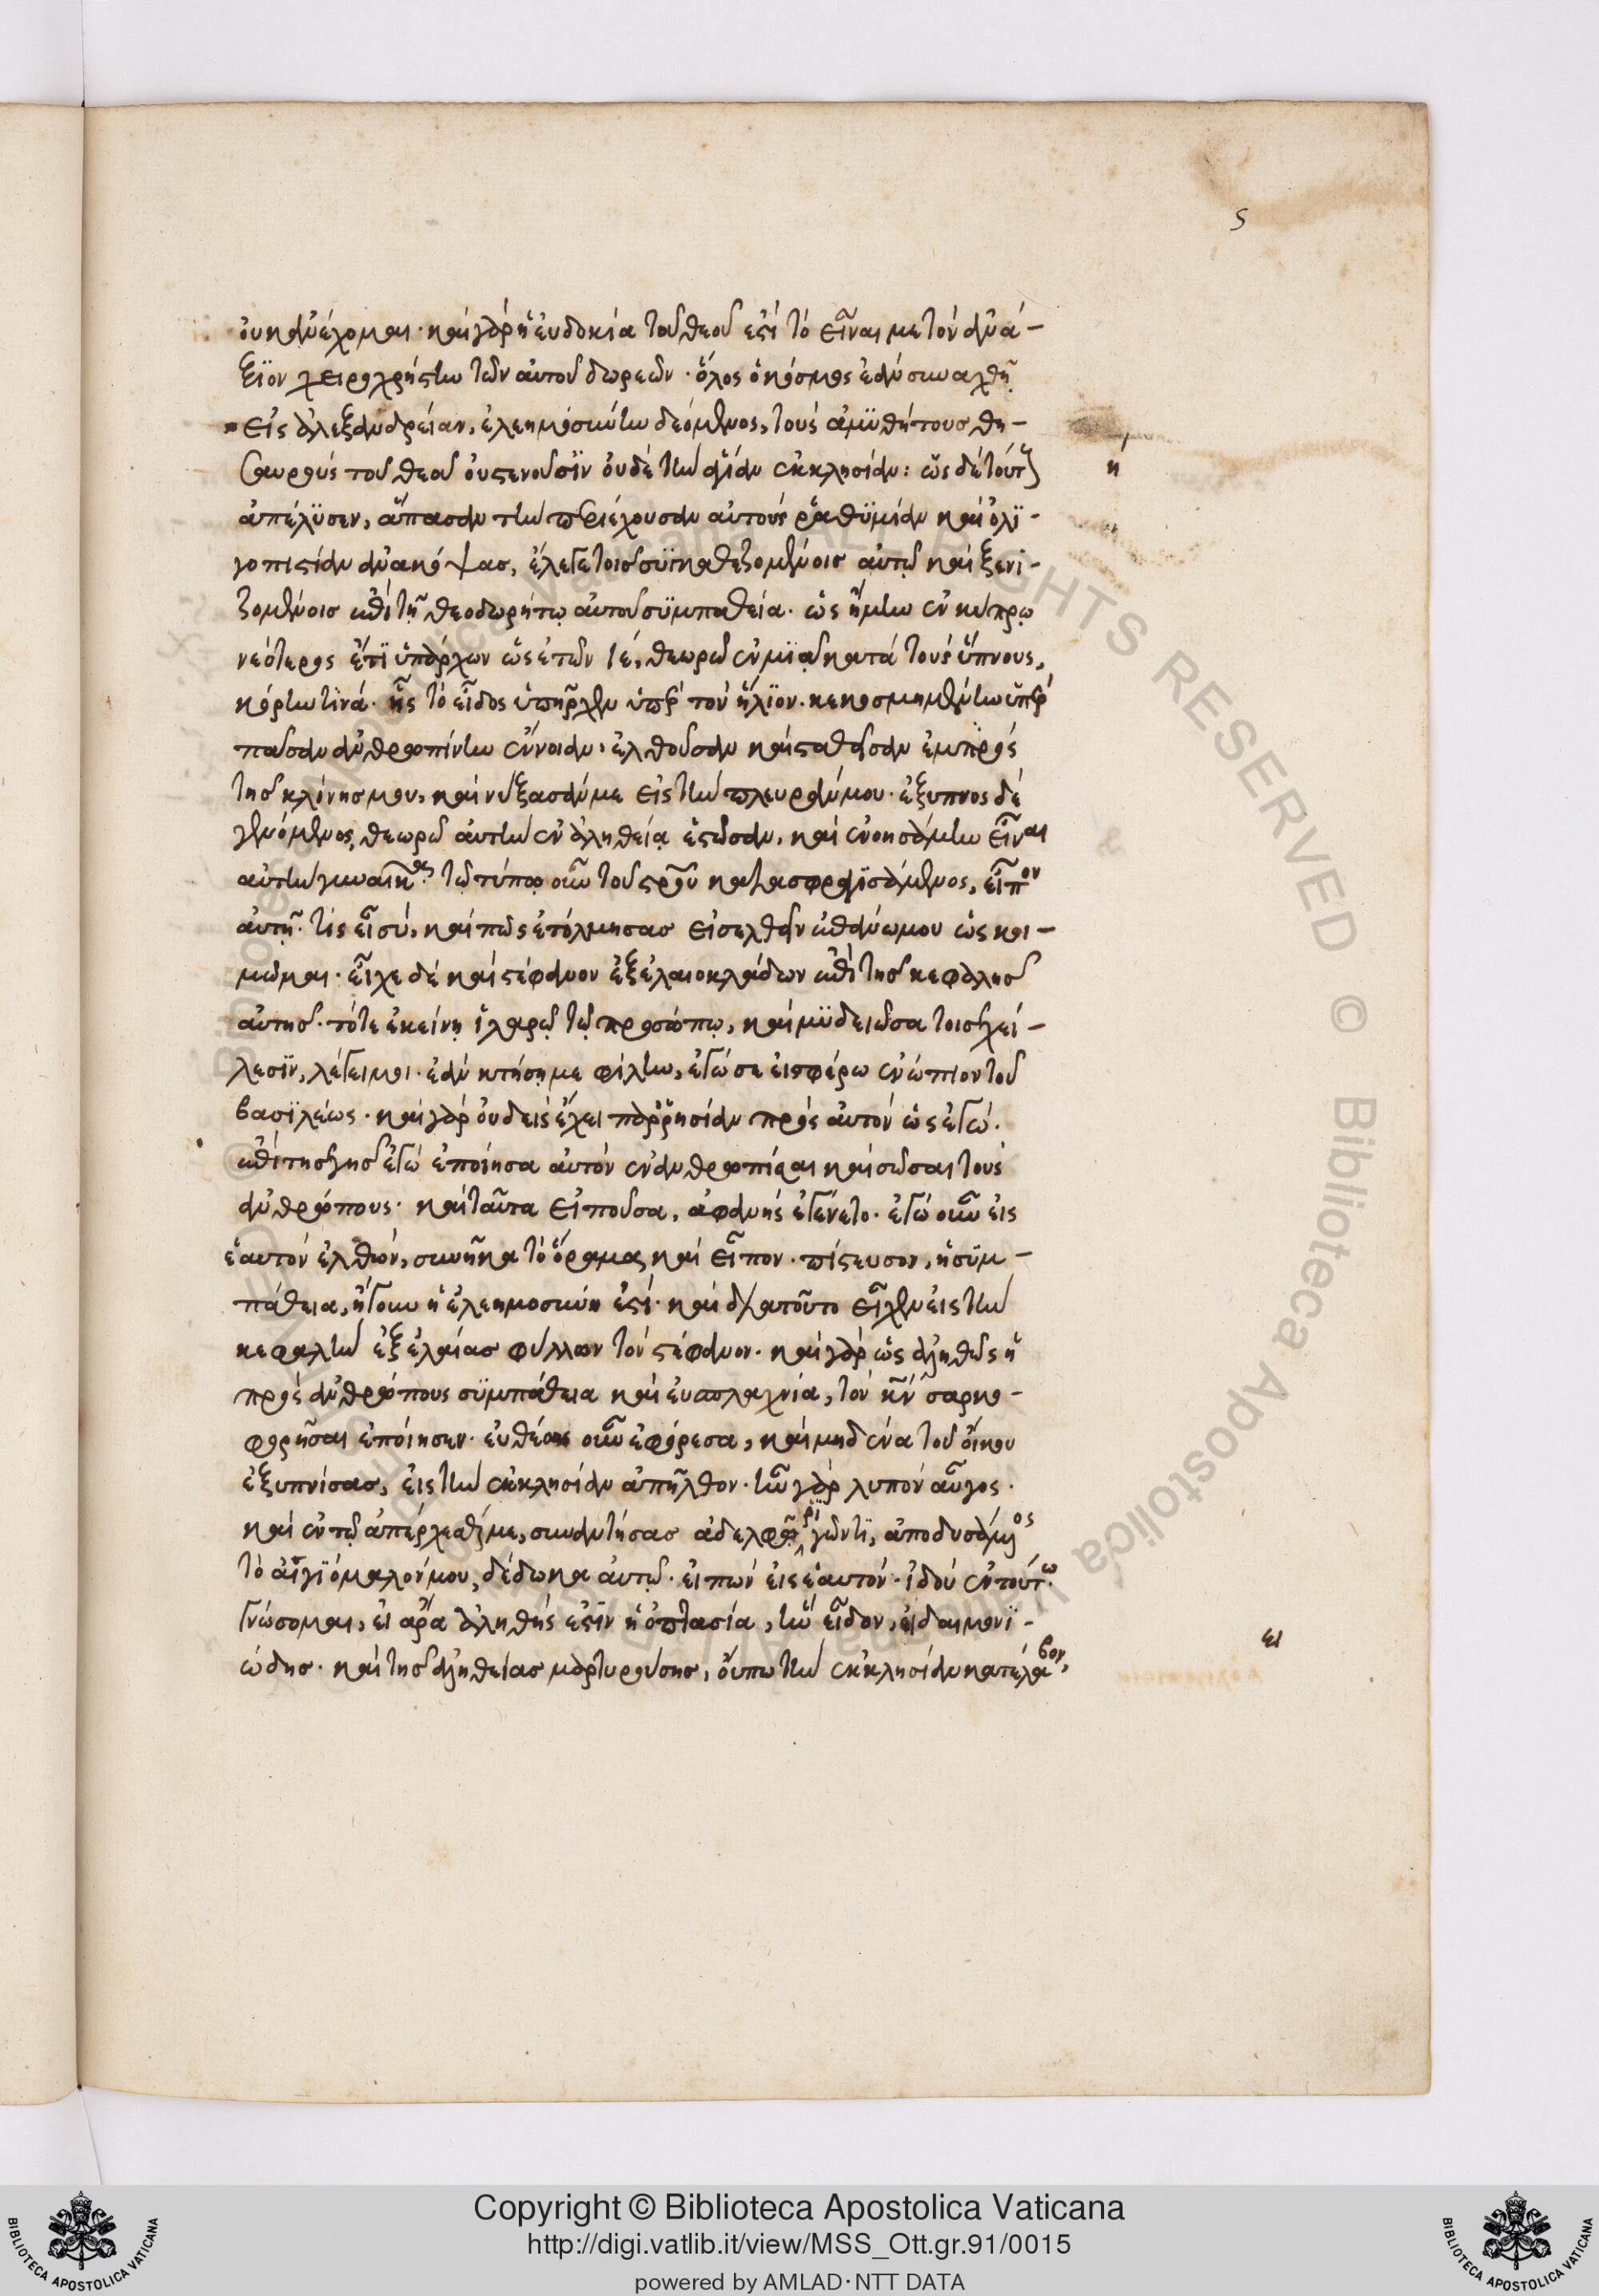 5
οὐκ ἀνέχομαι· καὶ γὰρ ἡ ἐυδοκία τοῦ θεοῦ ἐστὶ τὸ εἶναι με τὸν ἀνά-
ξϊον χειροχρήστην τῶν αὐτοῦ δωρεῶν· ὅλος ὁ κόσμος ἐὰν συναχθῆ
εἰς ἀλεξανδρείαν, ἐλεημοσύνην δεόμενος, τοὺς ἀμϋθήτους θη-
σαυροὺς τοῦ θεοῦ οὐ στενοῦσϊν οὐδὲ τὴν ἁγίαν ἐκκλησίαν: ὡς δὲ τούτους
ἀπέλϋσεν, ἅπασαν τὴν περιέχουσαν αὐτοὺς ῥαθϋμίαν καὶ ὀλϊ-
γοπιστίαν ἀνακόψας, ἔλεγε τοῖς συγκαθεζομένοις αὐτῷ καὶ ξενι-
ζομένοις ἐπὶ τῇ θεοδωρήτῳ αὐτοῦ συμπαθεία· ὡς ἤμην ἐν κύπρῳ
νεότερος ἔτϊ ὑπάρχων ὡς ἐτῶν ιέ, θεωρῶ ἐν μϊᾷ κατὰ τοὺς ὕπνους,
κόρην τϊνά· ἧς τὸ εἶδος ὑπῆρχεν ὑπὲρ τὸν ἥλϊον· κεκοσμημένην ὑπὲρ
πᾶσαν ἀνθροπίνην ἔννοιαν· ἐλθοῦσαν καὶ σταθεῖσαν ἐμπρὸς
τῆς κλίνης μου, καὶ νύξασάν με εἰς τὴν πλευράν μου· ἔξυπνος δὲ
γενόμενος, θεωρῶ αὐτὴν ἐν ἀληθείᾳ ἑστῶσαν, καὶ ἐνοησάμην εἶναι
αὐτὴν γυναῖκα· τῷ τύπῳ οὖν τοῦ σταυροῦ κατασφραγϊσάμενος, εἶπον
αὐτῇ· τίς εἶ σύ, καὶ πῶς ἐτόλμησας εἰσελθεῖν ἐπάνω μου ὡς κοι-
μῶμαι· εἶχε δὲ καὶ στέφανον ἐξ ἐλαιοκλάδων ἐπὶ τῆς κεφαλῆς
αὐτῆς· τότε ἐκείνη ἱλαρῷ τῷ προσώπῳ, καὶ μϋδειῶσα τοῖς χεί-
λεσϊν, λέγει μοι· ἐὰν κτήσῃ με φίλην, ἐγώ σε εἰσφέρω ἐνώπιον τοῦ
βασϊλέως· καὶ γὰρ οὐδεὶς ἔχει παρρησίαν πρὸς αὐτὸν ὡς ἐγώ·
ἐπὶ τῆς γῆς ἐγὼ ἐποίησα αὐτὸν ἐνανθροπίσαι καὶ σῶσαι τοὺς
ἀνθρόπους· καὶ ταῦτα εἰποῦσα, ἀφανὴς ἐγένετο· ἐγὼ οὖν εἰς
ἑαυτὸν ἐλθὼν, συνῆκα τὸ ὅραμα, καὶ εἶπον· πίστευσον, ἡ σϋμ-
πάθεια, ἤγουν ἡ ἐλεημοσύνη ἐστί· καὶ διατοῦτο εἶχεν εἰς τὴν
κεφαλὴν ἐξ ἐλαίας φύλλων τὸν στέφανον· καὶ γὰρ ὡς ἀληθῶς ἡ
πρὸς ἀνθρόπους σϋμπάθεια καὶ ἐυσπλαχνία, τὸν κν̄ σαρκο-
φορῆσαι ἐποίησεν· ἐυθέως οὖν ἐφόρεσα, καὶ μηδένα τοῦ οἴκου
ἐξυπνίσας, εἰς τὴν ἐκκλησίαν ἀπῆλθον· ἦν γὰρ λυπὸν αὖγος·
καὶ ἐν τῷ ἀπέρχεσθαί με, συναντήσας ἀδελφῷ ῥϊγῶντϊ, ἀποδυσάμενος
τὸ αἰγϊόμαλόν μου, δέδωκα αὐτῷ· εἰπὼν εἰς ἑαυτόν· ἰδοὺ ἐν τούτω
γνώσομαι, εἰ ἆρα ἀληθής ἐστϊν ἡ ὀπτασία, ἣν εἶδον, εἰ δαιμονϊ-
ώδης· καὶ τῆς ἀληθείας μαρτυρούσης, οὔπω τὴν ἐκκλησίαν κατέλαβον,
ή
ει
Copyright © Biblioteca Apostolica Vaticana
http://digi.vatlib.it/view/MSS_Ott.gr.91/0015
powered by AMLAD·NTT DATA
BIBLIOTECA APOSTOLICA VATICANA
BIBLIOTECA APOSTOLICA VATICANA